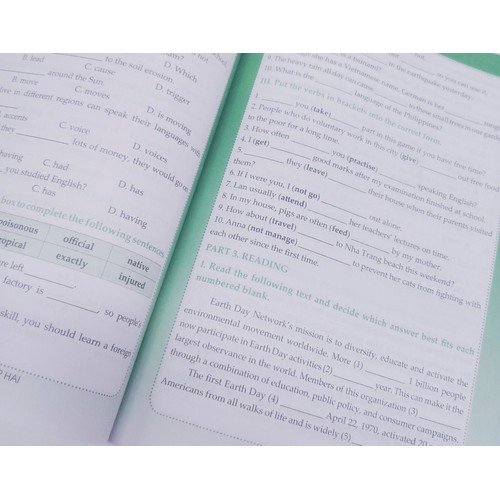 B. lead
C. cause
to the soil erosion.
D. Which
B. move
D. trigger
around the Sun.
C. moves
D. is moving
live in different regions can speak their languages with
accents
C. voice
D. voices
they ______ lots of money, they would go
having
C. had
D. has
, you studied English?
C. has
D. having
box to complete the following sentences.
poisonous
official
native
tropical
exactly
injured
were left ______.
factory is ______, so people
skill, you should learn a foreign
P HAI
as you can see it.
in the earthquake yesterday.
she has a Vietnamese name, German is her
9. The heavy rain all day can cause
10. What is the ______ language of the Philippines?
III. Put the verbs in brackets into the correct form.
1. ______ you (take) ______ part in this game if you have free time?
2. People who do voluntary work in this city (give) ______ out free food
to the poor for a long time.
3. How often ______ you (practise) ______ speaking English?
4. I (get) ______ good marks after my examination finished at school.
5 ______ they (leave) ______ their house when their parents visited
them?
6. If I were you, I (not go) ______ out alone.
7. I am usually (attend) ______ her teachers' lectures on time.
8. In my house, pigs are often (feed) ______ by my mother.
9. How about (travel) ______ to Nha Trang beach this weekend?
10. Anna (not manage) ______ to prevent her cats from fighting with
each other since the first time.
PART 3. READING
I. Read the following text and decide which answer best fits each
numbered blank.
Earth Day Network's mission is to diversify, educate and activate the
environmental movement worldwide. More (1) ______ 1 billion people
now participate in Earth Day activities (2) ______ year. This can make it the
largest observance in the world. Members of this organization (3) ______
through a combination of education, public policy, and consumer campaigns.
The first Earth Day (4) ______ April 22, 1970, activated 20
Americans from all walks of life and is widely (5)